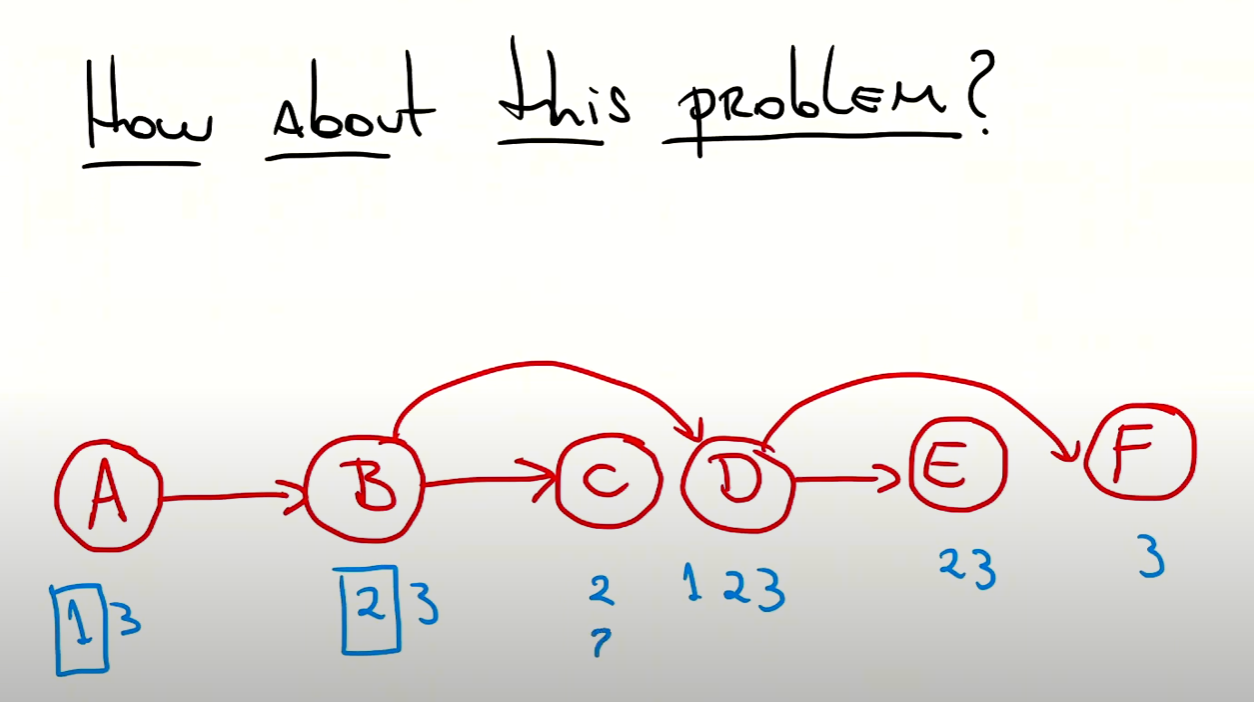 How about this problem?
A B C D E F
1 3 2 3 2 1 2 3 2 3 3
?